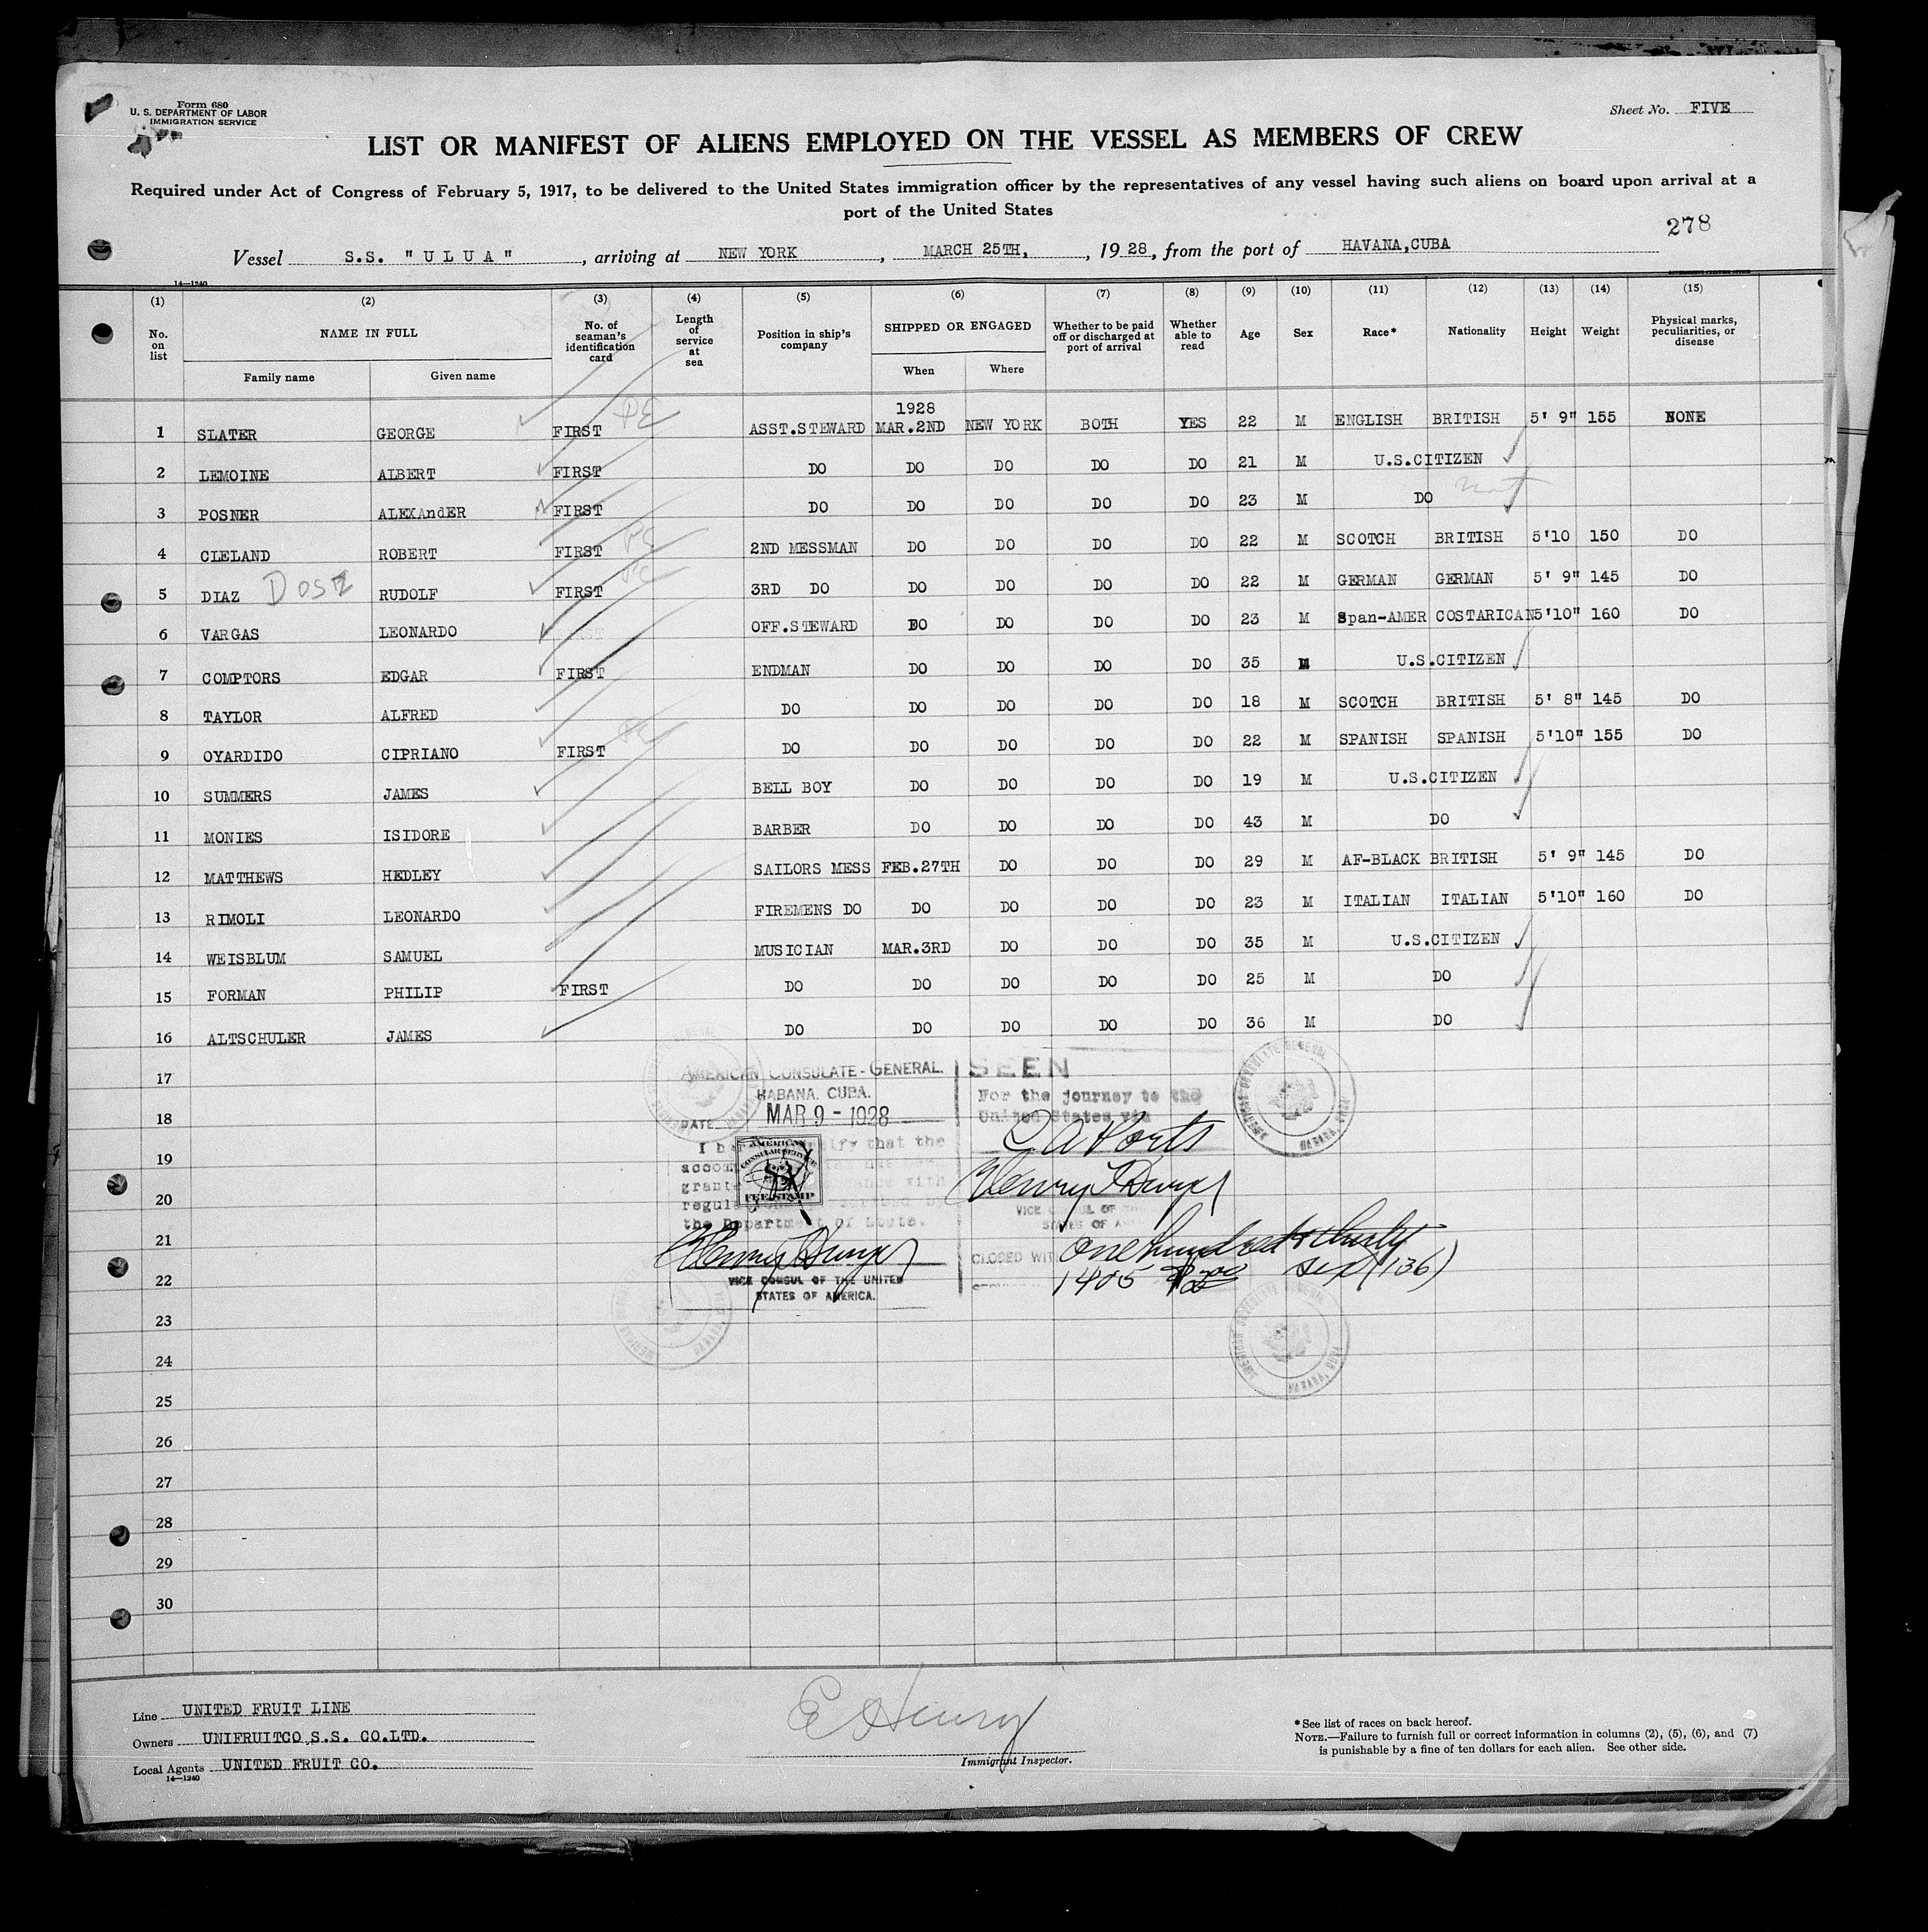 Form 680
U. S. DEPARTMENT OF LABOR
IMMIGRATION SERVICE
Sheet No. FIVE
LIST OR MANIFEST OF ALIENS EMPLOYED ON THE VESSEL AS MEMBERS OF CREW
Required under Act of Congress of February 5, 1917, to be delivered to the United States immigration officer by the representatives of any vessel having such aliens on board upon arrival at a
port of the United States
278
Vessel S.S. "ULUA", arriving at NEW YORK, MARCH 25TH, , 1928, from the port of HAVANA,CUBA
14—1240
(1) (2) (3) (4) (5) (6) (7) (8) (9) (10) (11) (12) (13) (14) (15)
No. on list NAME IN FULL No. of seaman's identification card Length of service at sea Position in ship's company SHIPPED OR ENGAGED Whether to be paid off or discharged at port of arrival Whether able to read Age Sex Race* Nationality Height Weight Physical marks, peculiarities, or disease
Family name Given name When Where
1928
1 SLATER GEORGE FIRST PE ASST.STEWARD MAR.2ND NEW YORK BOTH YES 22 M ENGLISH BRITISH 5' 9" 155 NONE
2 LEMOINE ALBERT FIRST DO DO DO DO DO 21 M U.S.CITIZEN
3 POSNER ALEXAndER FIRST DO DO DO DO DO 23 M DO
4 CLELAND ROBERT FIRST PE 2ND MESSMAN DO DO DO DO 22 M SCOTCH BRITISH 5'10 150 DO
5 DIAZ RUDOLF FIRST 3RD DO DO DO DO DO 22 M GERMAN GERMAN 5' 9" 145 DO
6 VARGAS LEONARDO OFF.STEWARD DO DO DO DO 23 M Span-AMER COSTARICAN 5'10" 160 DO
7 COMPTORS EDGAR FIRST ENDMAN DO DO DO DO 35 M U.S.CITIZEN
8 TAYLOR ALFRED DO DO DO DO DO 18 M SCOTCH BRITISH 5' 8" 145 DO
9 OYARDIDO CIPRIANO FIRST DO DO DO DO DO 22 M SPANISH SPANISH 5'10" 155 DO
10 SUMMERS JAMES BELL BOY DO DO DO DO 19 M U.S.CITIZEN
11 MONIES ISIDORE BARBER DO DO DO DO 43 M DO
12 MATTHEWS HEDLEY SAILORS MESS FEB.27TH DO DO DO 29 M AF-BLACK BRITISH 5' 9" 145 DO
13 RIMOLI LEONARDO FIREMENS DO DO DO DO DO 23 M ITALIAN ITALIAN 5'10" 160 DO
14 WEISBLUM SAMUEL MUSICIAN MAR.3RD DO DO DO 35 M U.S.CITIZEN
15 FORMAN PHILIP FIRST DO DO DO DO DO 25 M DO
16 ALTSCHULER JAMES DO DO DO DO DO 36 M DO
17
18
19
20
21
22
23
24
25
26
27
28
29
30
AMERICAN CONSULATE-GENERAL.
HABANA, CUBA.
DATE MAR 9 - 1928
that the
with
the Department of State.
AMERICAN CONSULAR SERVICE
FEE STAMP
VICE CONSUL OF THE UNITED
STATES OF AMERICA.
SEEN
For the journey to the
United States via
Ports
VICE CONSUL OF
STATES OF
CLOSED WITH one hundred & thirty
six (136)
1405
Line UNITED FRUIT LINE
Owners UNIFRUITCO S.S. CO.LTD.
Local Agents UNITED FRUIT CO.
14—1240
E Henry
Immigrant Inspector.
*See list of races on back hereof.
NOTE.—Failure to furnish full or correct information in columns (2), (5), (6), and (7)
is punishable by a fine of ten dollars for each alien. See other side.